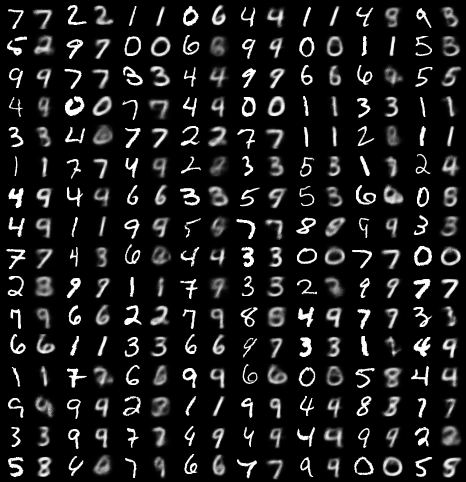 7 7 2 2 1 1 0 6 4 4 1 1 4 9
5 2 9 7 0 0 6 9 9 0 0 1 1 5 3
9 9 7 7 3 3 4 4 9 9 6 6 6 5 5
4 9 0 0 7 7 4 9 0 0 1 1 3 3 1 1
3 3 4 7 7 2 2 7 7 1 1 2 1 1
1 1 7 7 4 9 2 3 3 5 3 1 2 9
4 9 4 9 6 6 3 3 5 9 5 3 6 6 0
4 9 1 1 9 9 5 7 7 8 9 9 3 3
7 7 4 3 6 4 4 3 3 0 0 7 7 0 0
2 9 9 1 1 7 9 3 3 2 9 9 7 7
7 9 6 6 2 2 7 9 8 4 9 7 7 3 3
6 6 1 1 3 3 6 6 9 7 3 3 1 4 9
1 1 7 6 9 9 6 6 0 5 8 4 4
9 9 9 2 1 1 9 9 4 9 8 3 7 7
3 3 9 9 7 7 4 9 4 9 4 9 9 9 2
5 8 4 7 9 6 6 7 9 9 0 0 5 5